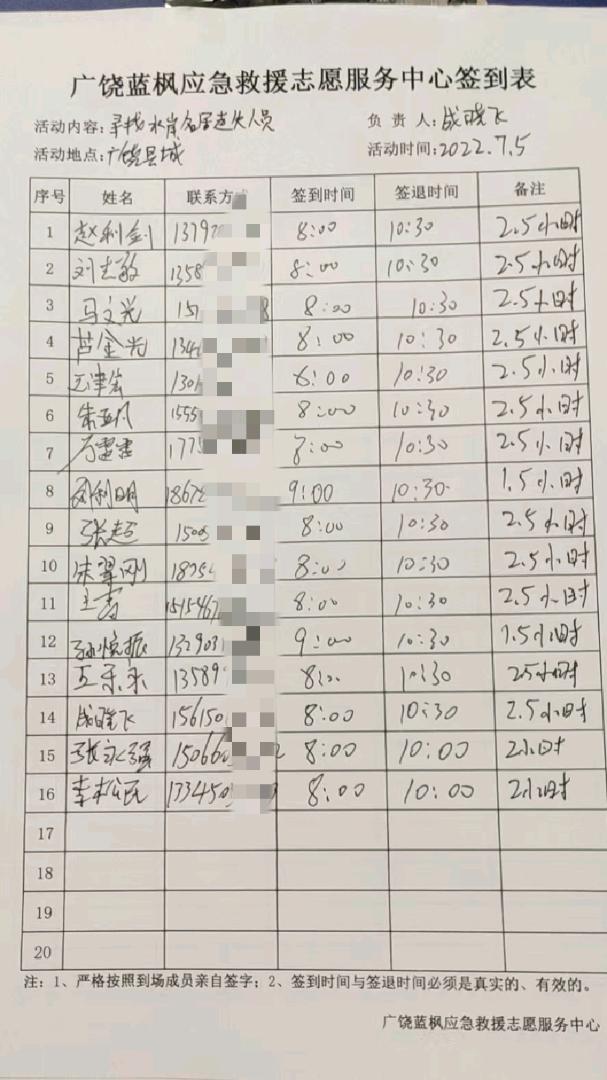 广饶蓝枫应急救援志愿服务中心签到表
活动内容：寻找水岸名居走失人员 负 责 人：成晓飞
活动地点：广饶县城 活动时间：2022.7.5
序号 姓名 联系方式 签到时间 签退时间 备注
1 赵利剑 1379 8:00 10:30 2.5小时
2 刘志敏 1358 8:00 10:30 2.5小时
3 马文光 15 8:00 10:30 2.5小时
4 芦金光 134 8:00 10:30 2.5小时
5 130 8:00 10:30 2.5小时
6 朱亚凡 1555 8:00 10:30 2.5小时
7 万雷雷 177 8:00 10:30 2.5小时
8 周利明 1867 9:00 10:30 1.5小时
9 张超 150 8:00 10:30 2.5小时
10 朱翠刚 1875 8:00 10:30 2.5小时
11 王雷 1515467 8:00 10:30 2.5小时
12 孙悦振 132903 9:00 10:30 1.5小时
13 王乐乐 13589 8:00 10:30 2.5小时
14 成晓飞 15615 8:00 10:30 2.5小时
15 张永强 15066 8:00 10:00 2小时
16 李松民 133450 8:00 10:00 2小时
17
18
19
20
注：1、严格按照到场成员亲自签字；2、签到时间与签退时间必须是真实的、有效的。
广饶蓝枫应急救援志愿服务中心